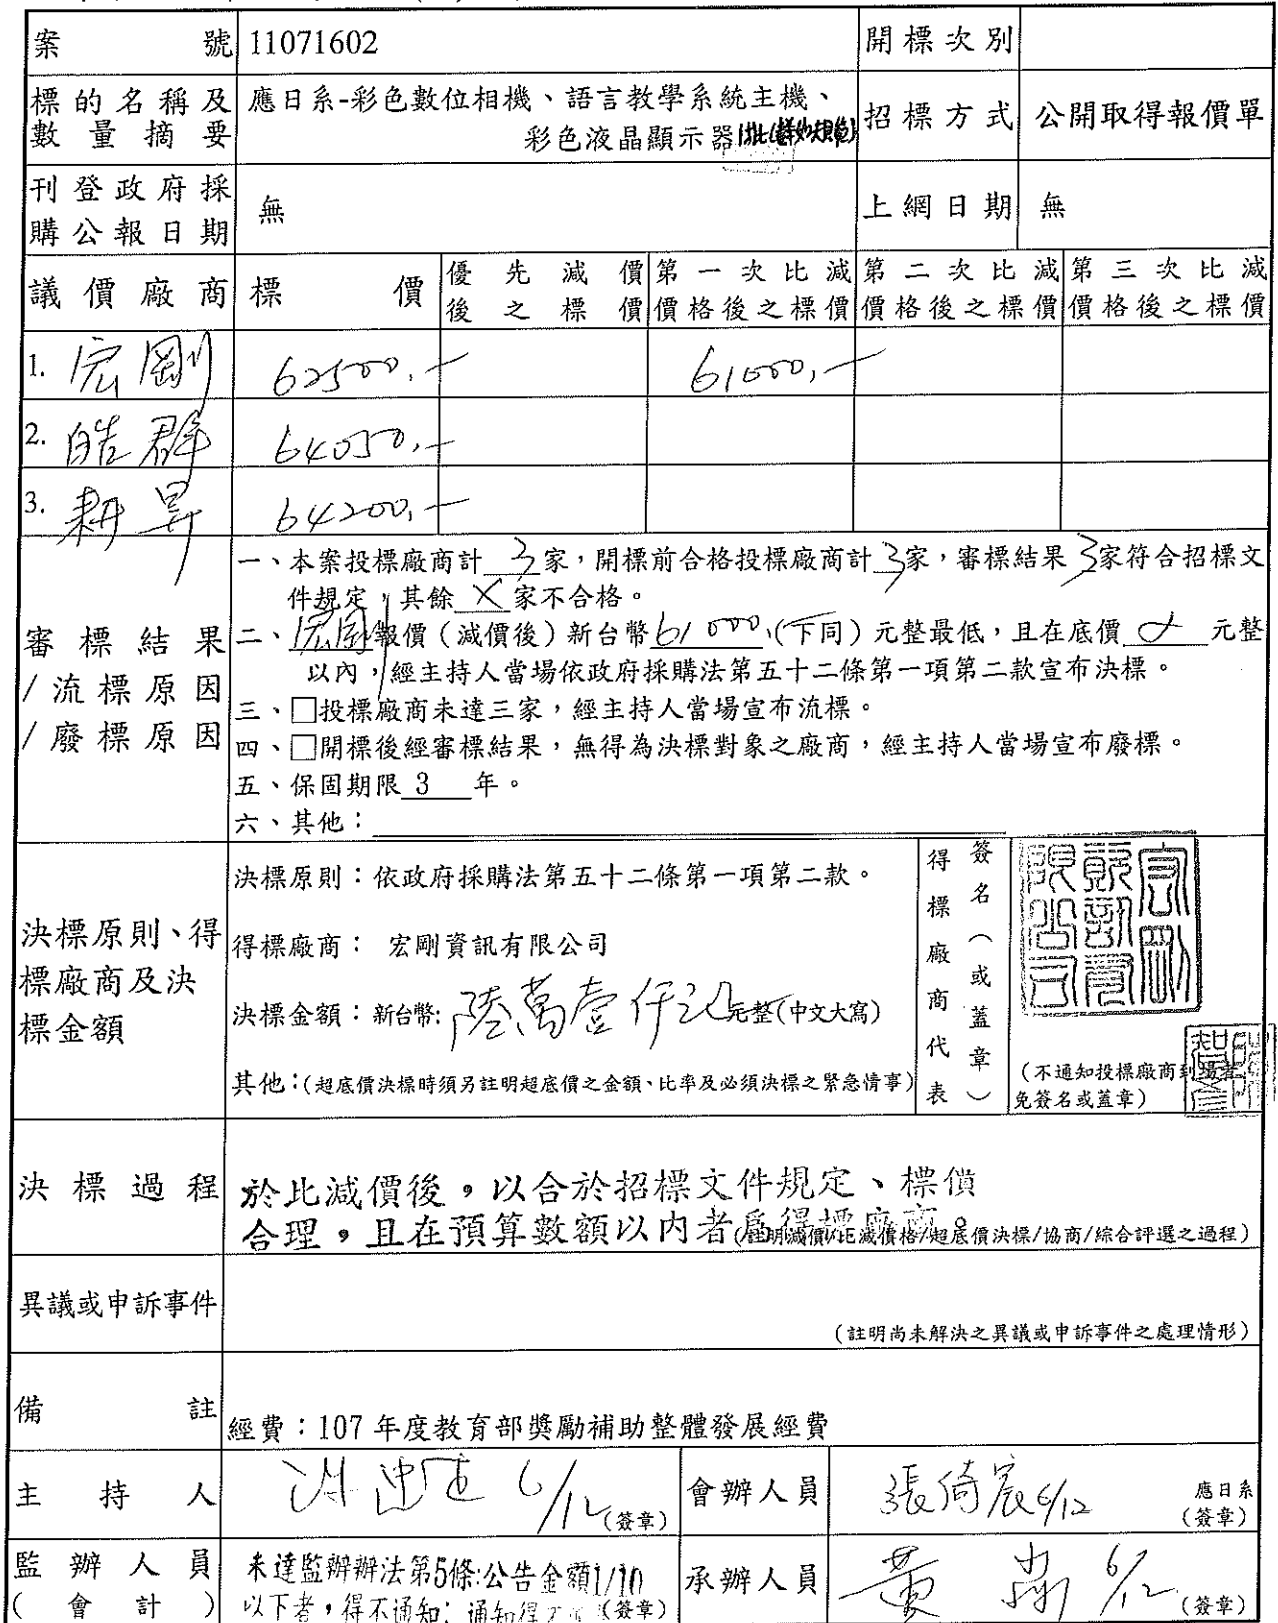 案號 11071602 開標次別
標的名稱及數量摘要 應日系-彩色數位相機、語言教學系統主機、
彩色液晶顯示器 招標方式 公開取得報價單
刊登政府採購公報日期 無 上網日期 無
議價廠商 標價 優先減價後之標價 第一次比減價格後之標價 第二次比減價格後之標價 第三次比減價格後之標價
1. 宏剛 62500.- 61000.-
2. 皓群 64050.-
3. 耕昇 64200.-
審標結果/流標原因/廢標原因
一、本案投標廠商計 3 家，開標前合格投標廠商計 3 家，審標結果 3 家符合招標文
件規定，其餘 X 家不合格。
二、宏剛報價（減價後）新台幣 61000.(下同）元整最低，且在底價 元整
以內，經主持人當場依政府採購法第五十二條第一項第二款宣布決標。
三、□投標廠商未達三家，經主持人當場宣布流標。
四、□開標後經審標結果，無得為決標對象之廠商，經主持人當場宣布廢標。
五、保固期限 3 年。
六、其他：
決標原則、得標廠商及決標金額
決標原則：依政府採購法第五十二條第一項第二款。
得標廠商： 宏剛資訊有限公司
決標金額：新台幣:陸萬壹仟元元整(中文大寫)
其他：(超底價決標時須另註明超底價之金額、比率及必須決標之緊急情事)
得標廠商代表
簽名（或蓋章）
宏剛資訊有限公司
(不通知投標廠商到場者
免簽名或蓋章)
決標過程
於比減價後，以合於招標文件規定、標價
合理，且在預算數額以內者為得標廠商。
(註明減價/比減價格/超底價決標/協商/綜合評選之過程)
異議或申訴事件
(註明尚未解決之異議或申訴事件之處理情形)
備註 經費：107 年度教育部獎勵補助整體發展經費
主持人 6/12 (簽章) 會辦人員 張倚宸 6/12 應日系
(簽章)
監辦人員
(會計)
未達監辦辦法第5條:公告金額1/10
以下者，得不通知; (簽章)
承辦人員 黃 6/12 (簽章)